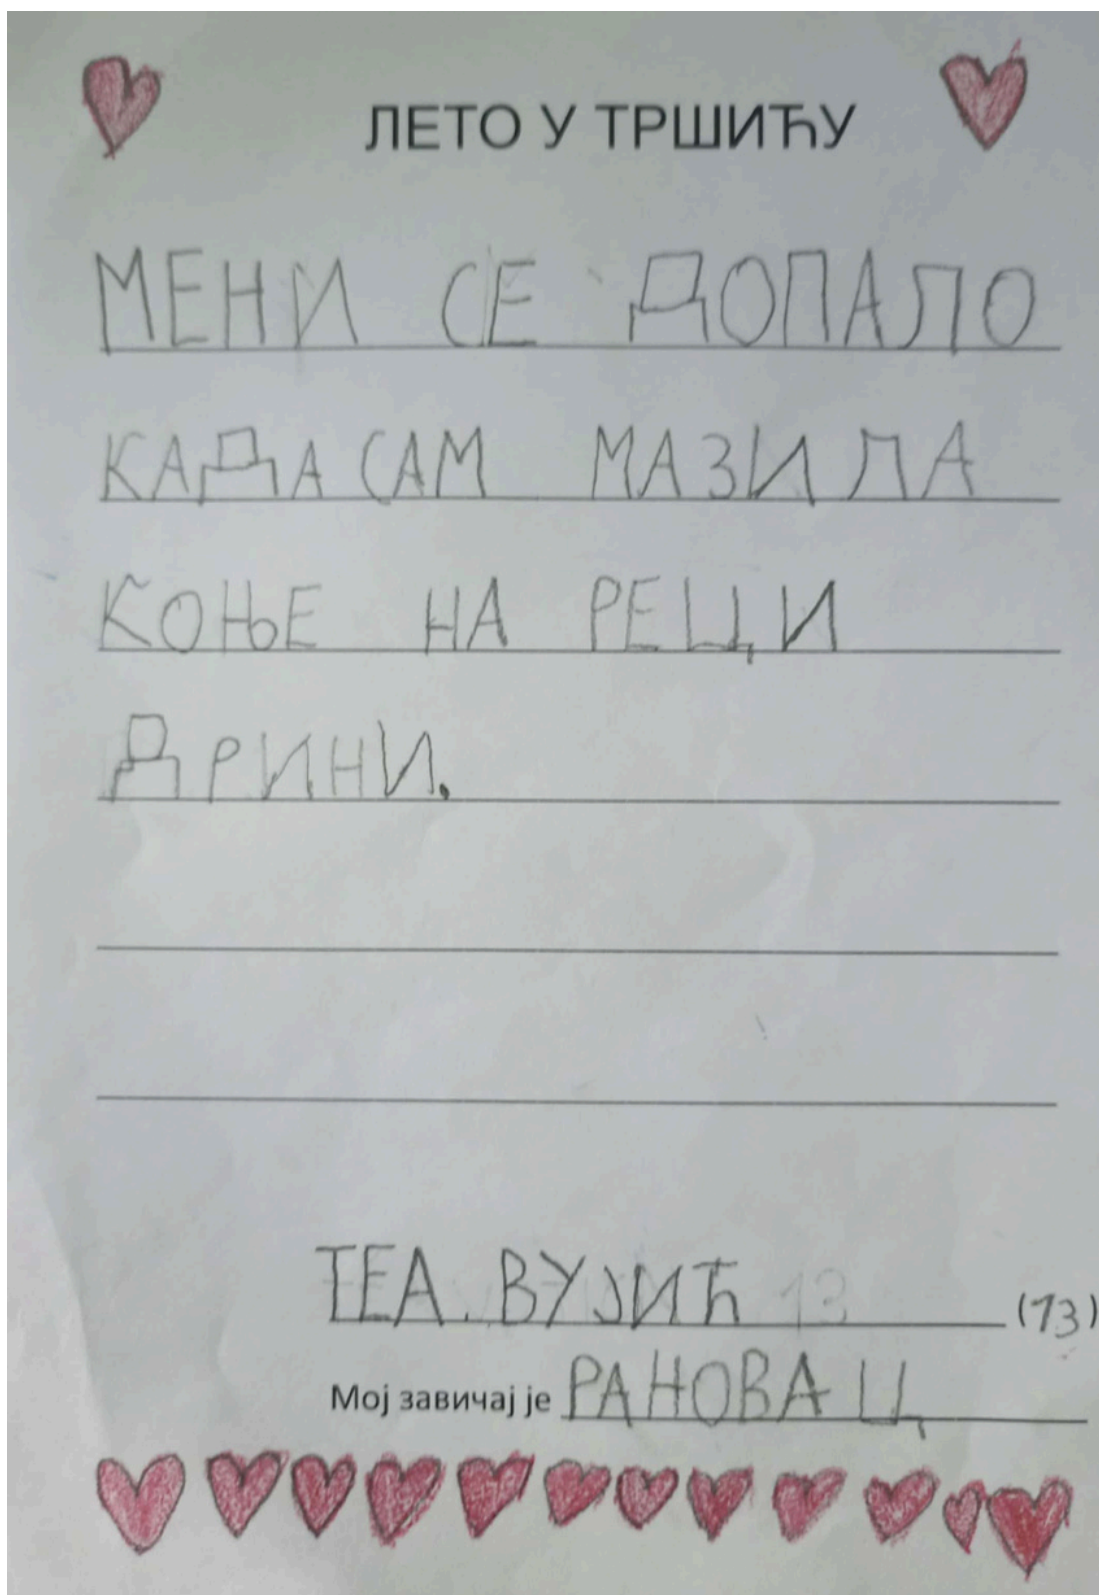 ЛЕТО У ТРШИЋУ
МЕНИ СЕ ДОПАЛО
КАДА САМ МАЗИЛА
КОЊЕ НА РЕЦИ
ДРИНИ.
ТЕА ВУЈИЋ 13 (13)
Мој завичај је РАНОВАЦ